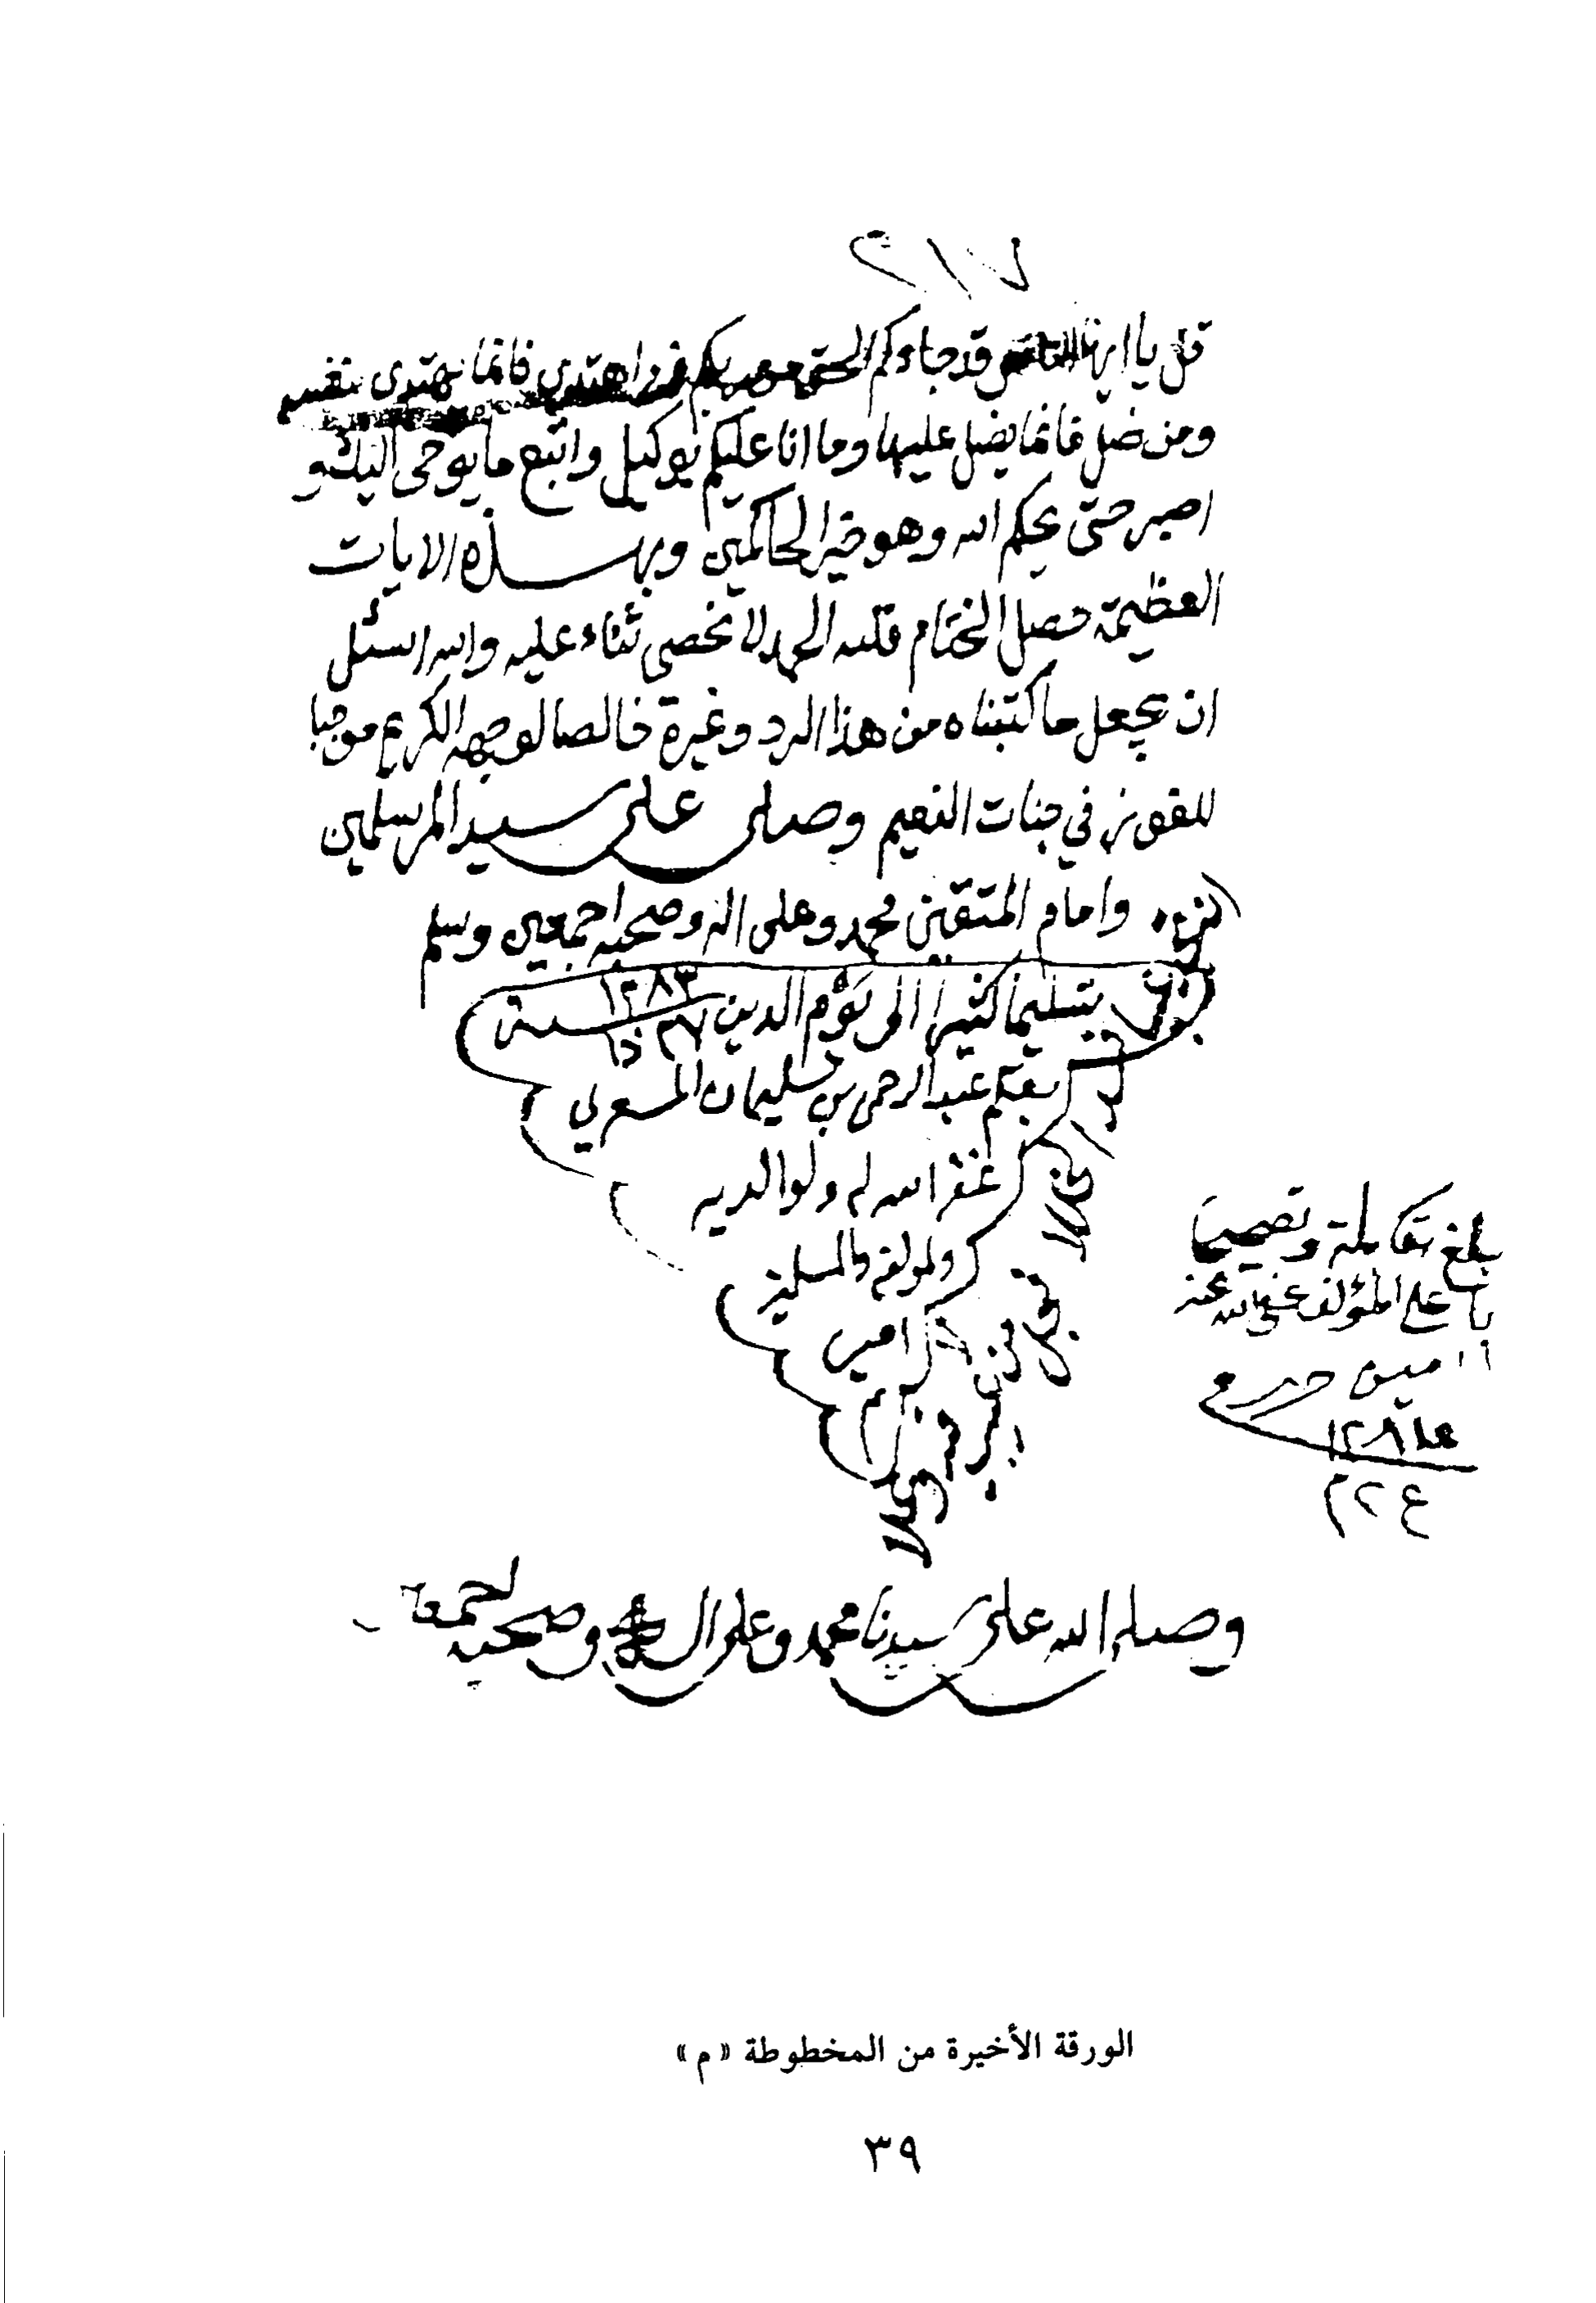 ٢١٧
قل يا ايها الناس قد جاءكم الحق من ربكم فمن اهتدى فانما يهتدى لنفسه
ومن ضل فانما يضل عليها وما انا عليكم بوكيل واتبع ما يوحى اليك و
اصبر حتى يحكم الله وهو خير الحاكمين وبهذه الايات
العظيمة حصل الختام فلله الحمد لا نحصى ثناء عليه والله اسئل
ان يجعل ما كتبناه من هذا الرد وغيرة خالصا لوجهه الكريم موجبا
للفوز في جنات النعيم وصلى على سيد المرسلين
وامام المتقين محمد وعلى اله وصحبه اجمعين وسلم
تسليما كثيرا الى يوم الدين ٢٧ سنة ١٢٨٣
بقلم عبد الرحمن بن سليمان
غفر الله له ولوالديه
ولمؤلفه والمسلمين
امين
بلغ مقابلة وتصحيحا
على المؤلف عفى الله عنه
امين
وصلى الله على سيدنا محمد وعلى ال وصحبه
الورقة الأخيرة من المخطوطة «م»
٣٩